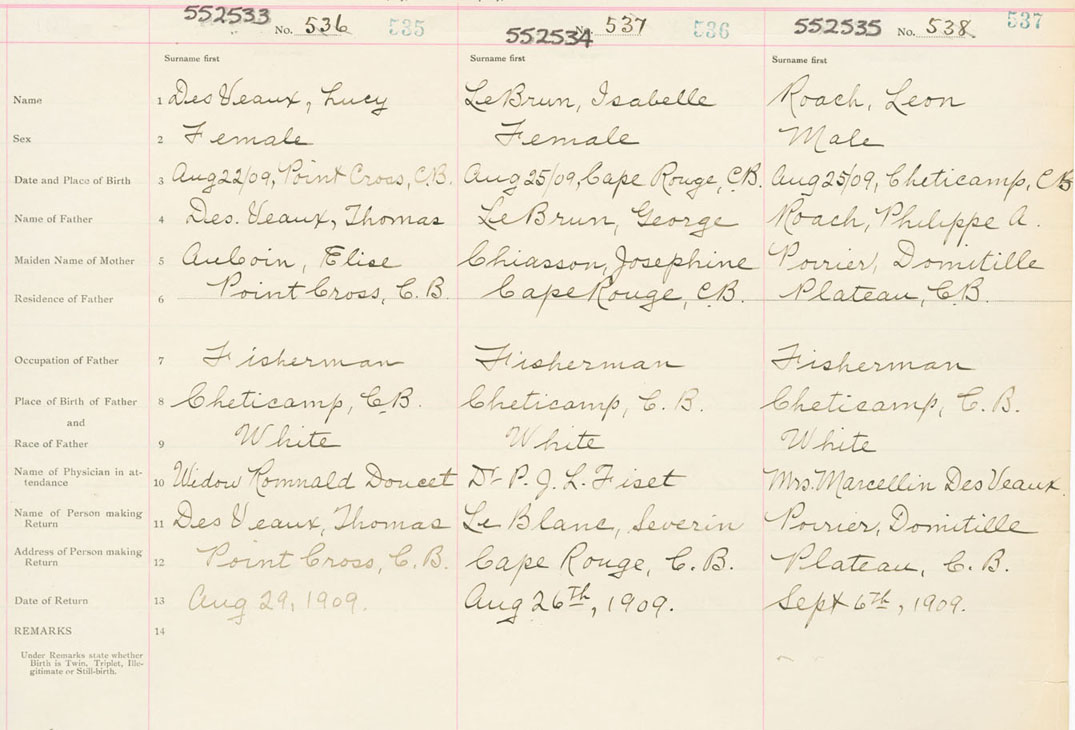 552533 No. 536 535 552534 No. 537 536 552535 No. 538 537
Surname first Surname first Surname first
Name 1 DesVeaux, Lucy LeBrun, Isabelle Roach, Leon
Sex 2 Female Female Male
Date and Place of Birth 3 Aug 22/09, Point Cross, C.B. Aug 25/09, Cape Rouge, C.B. Aug 25/09, Cheticamp, C.B
Name of Father 4 Des. Veaux, Thomas LeBrun, George Roach, Philippe A.
Maiden Name of Mother 5 AuCoin, Elise Chiasson, Josephine Poirier, Domitille
Residence of Father 6 Point Cross, C.B. Cape Rouge, C.B. Plateau, C.B.
Occupation of Father 7 Fisherman Fisherman Fisherman
Place of Birth of Father 8 Cheticamp, C.B. Cheticamp, C.B. Cheticamp, C.B.
and
Race of Father 9 White White White
Name of Physician in at-
tendance 10 Widow Romnald Doucet Dr P. J. L. Fiset Mrs. Marcellin DesVeaux.
Name of Person making
Return 11 DesVeaux, Thomas Le Blanc, Severin Poirier, Domitille
Address of Person making
Return 12 Point Cross, C.B. Cape Rouge, C.B. Plateau, C.B.
Date of Return 13 Aug 29, 1909. Aug 26th, 1909. Sept 6th, 1909.
REMARKS 14
Under Remarks state whether
Birth is Twin, Triplet, Ille-
gitimate or Still-birth.